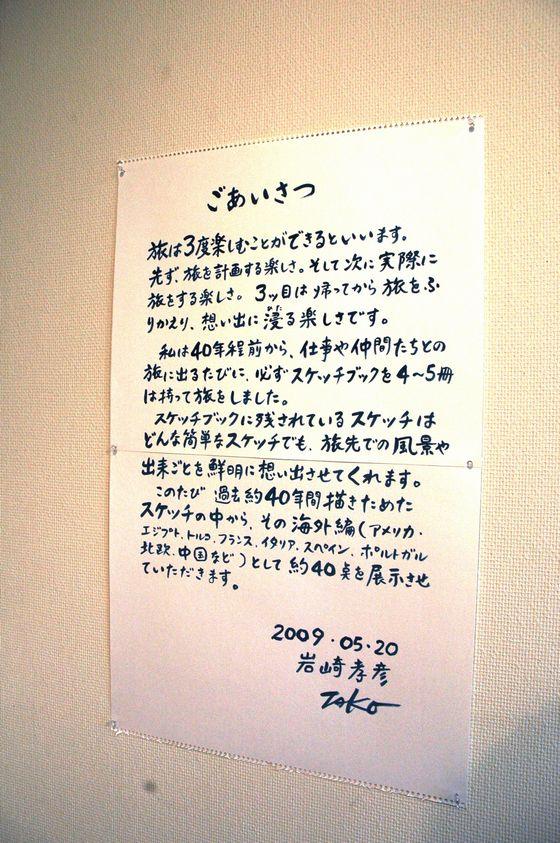 ごあいさつ
旅は3度楽しむことができるといいます。
先ず、旅を計画する楽しさ。そして次に実際に
旅をする楽しさ。3ッ目は帰ってから旅をふ
りかえり、想い出に浸る楽しさです。
私は40年程前から、仕事や仲間たちとの
旅に出るたびに、必ずスケッチブックを4～5冊
は持って旅をしました。
スケッチブックに残されているスケッチは
どんな簡単なスケッチでも、旅先での風景や
出来ごとを鮮明に想い出させてくれます。
このたび過去約40年間描きためた
スケッチの中から、その海外編(アメリカ・
エジプト、トルコ、フランス、イタリア、スペイン、ポルトガル
北欧、中国など)として約40点を展示させ
ていただきます。
2009・05・20
岩崎孝彦
Tako